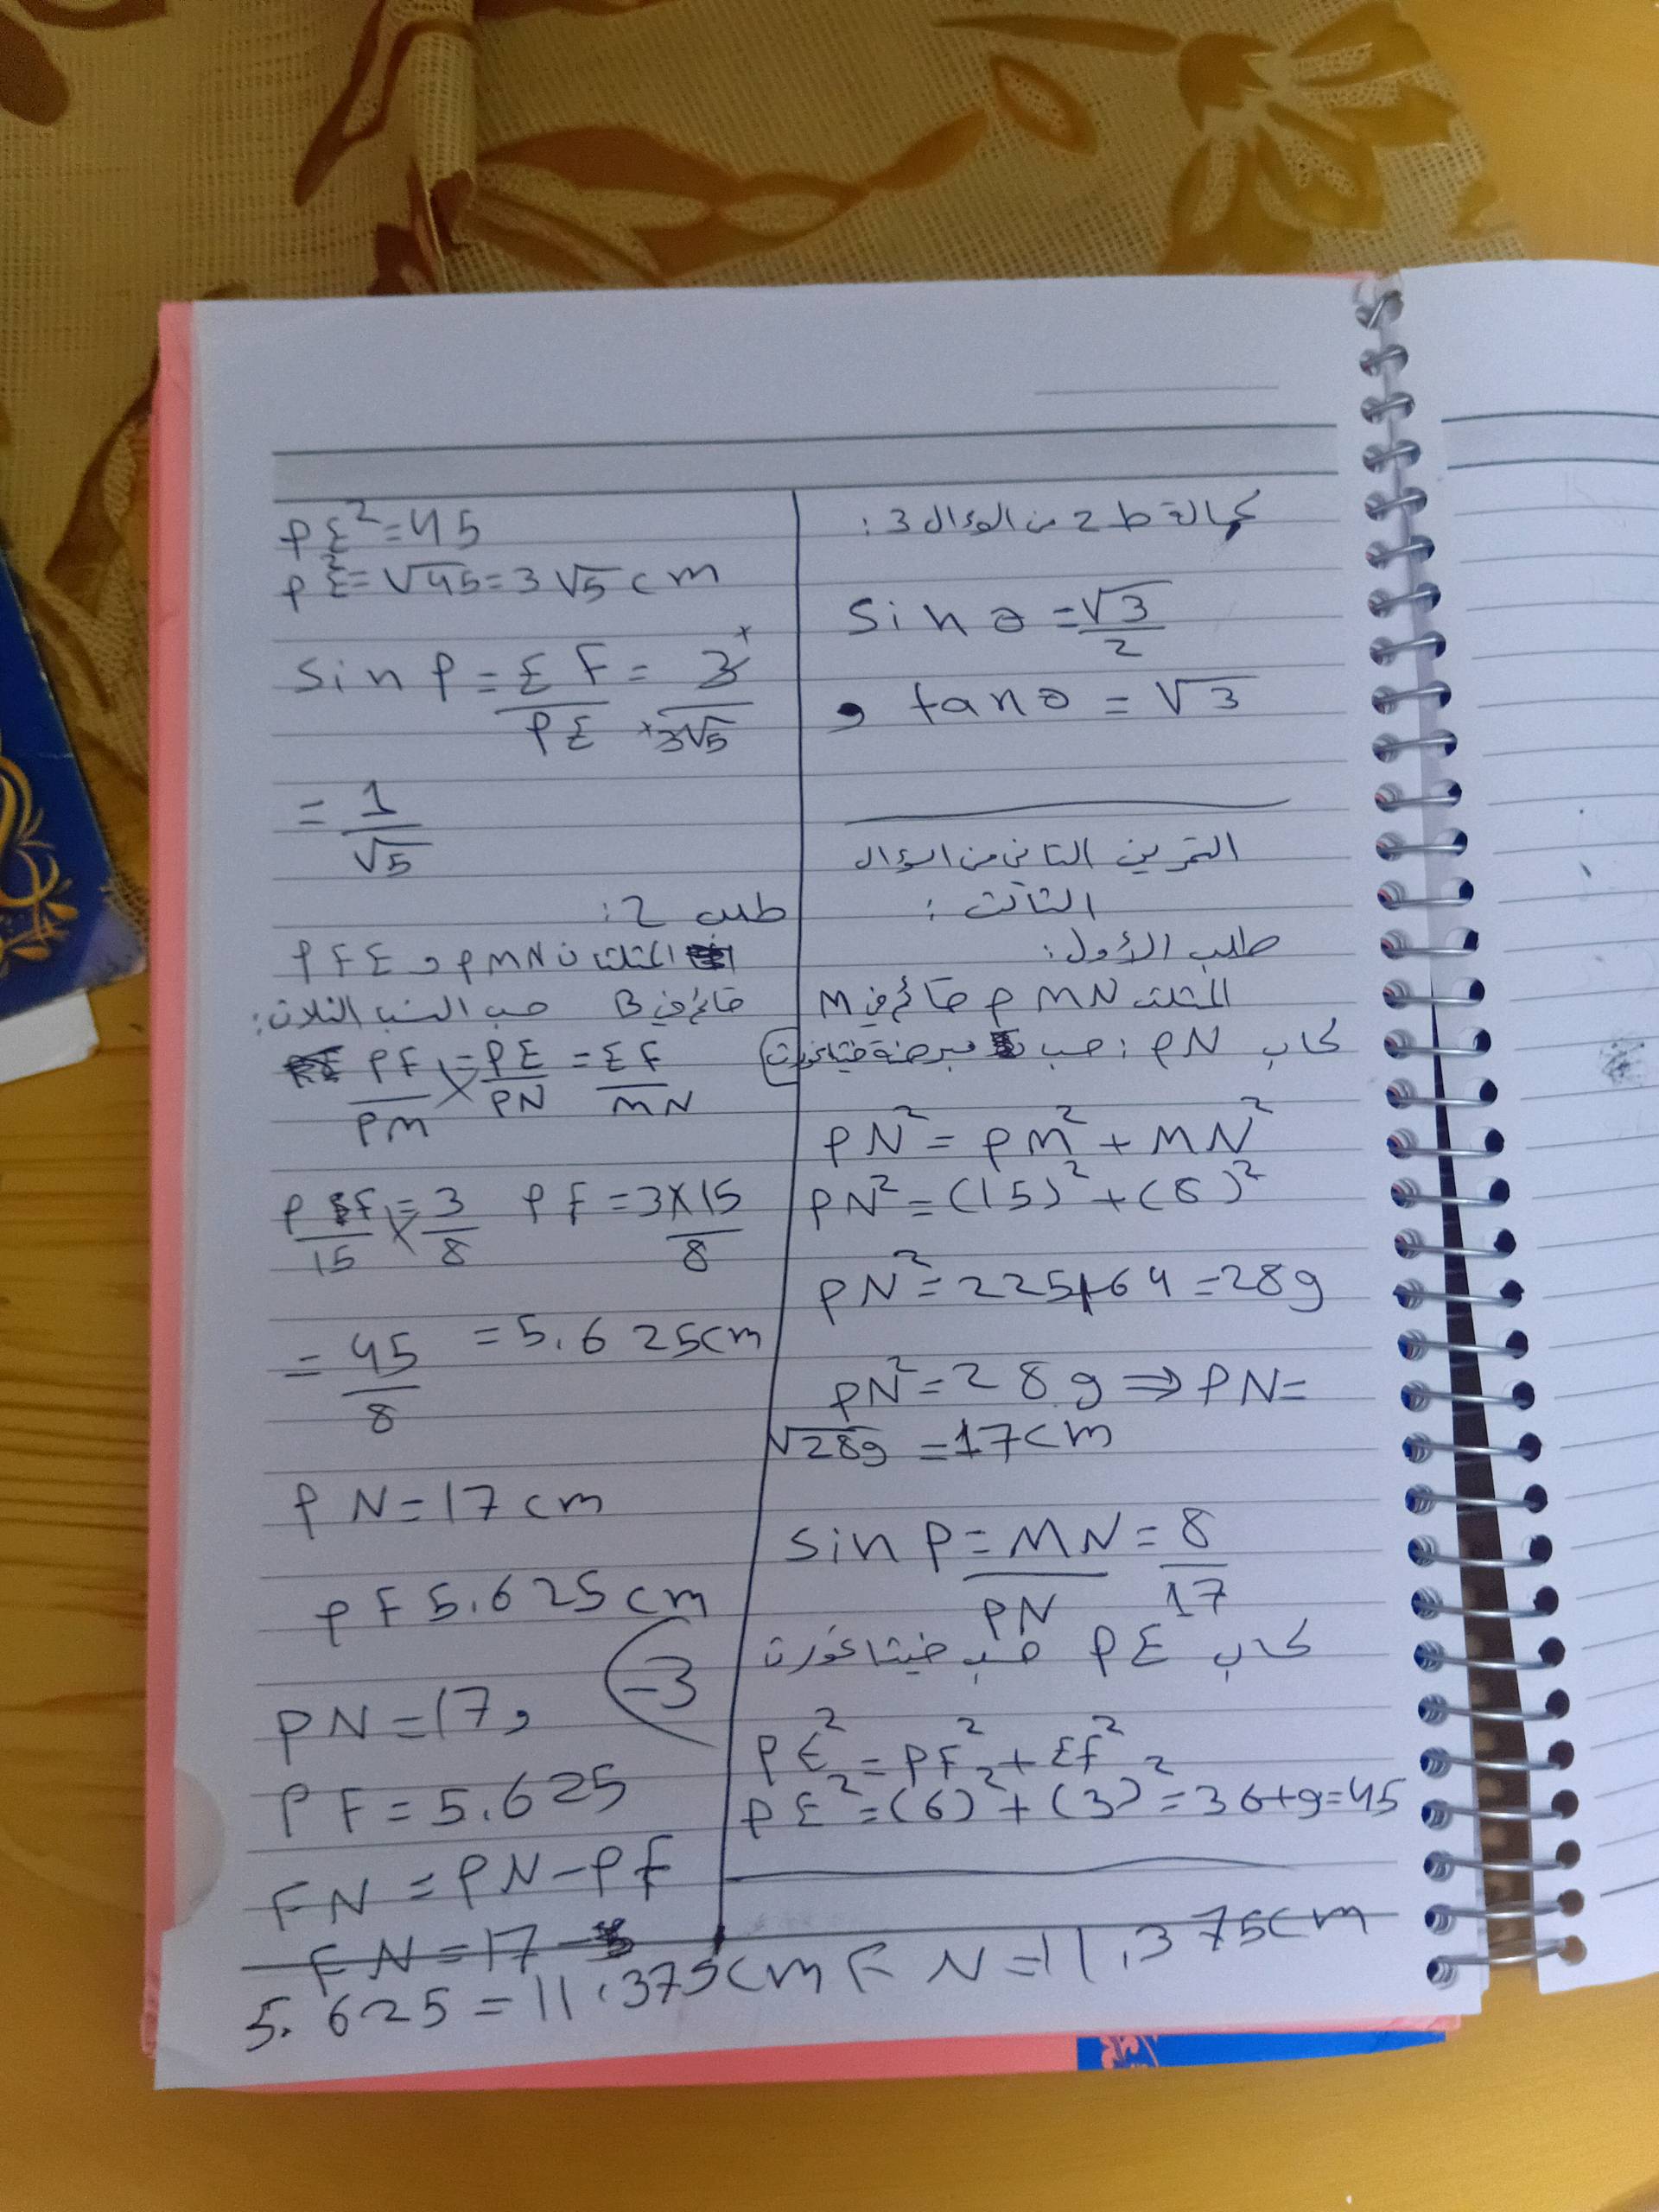 كمالة ط2 من السؤال 3:
sin θ = √3/2
, tan θ = √3
التمرين الثاني من السؤال
الثالث:
طلب الأول:
المثلث PMN قائم في M
حساب PN: حسب مبرهنة فيثاغورث
PN² = PM² + MN²
PN² = (15)² + (8)²
PN² = 225+64 = 289
PN² = 289 ⇒ PN =
√289 = 17cm
sin P = MN/PN = 8/17
حساب PE حسب فيثاغورث
PE² = PF² + EF²
PE² = (6)² + (3)² = 36+9=45
PE² = 45
PE² = √45 = 3√5 cm
sin P = EF/PE = 3/3√5
= 1/√5
طلب 2:
المثلثان PMN و PFE
قائم في B حسب النسب الثلاث:
PF/PM = PE/PN = EF/MN
PF/15 = 3/8 PF = 3×15/8
= 45/8 = 5.625cm
PN = 17 cm
PF 5.625 cm
-3
PN = 17,
PF = 5.625
FN = PN - PF
FN = 17 -
5.625 = 11.375cm FN = 11.375cm